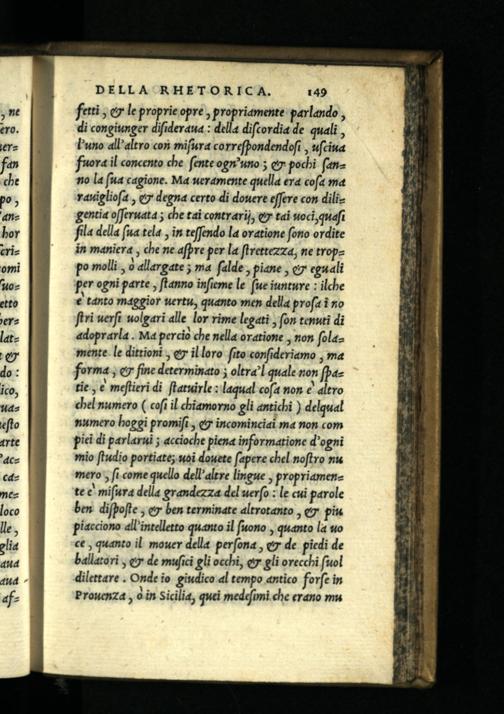 DELLA RHETORICA. 149
fetti, & le proprie opre, propriamente parlando,
di congiunger disideraua: della discordia de quali,
l'uno all'altro con misura correspondendosi, usciua
fuora il concento che sente ogn'uno; & pochi san=
no la sua cagione. Ma ueramente quella era cosa ma
rauigliosa, & degna certo di douere essere con dili=
gentia osseruata; che tai contrarij, & tai uoci, quasi
fila della sua tela, in tessendo la oratione sono ordite
in maniera, che ne aspre per la strettezza, ne trop=
po molli, ò allargate; ma salde, piane, & eguali
per ogni parte, stanno insieme le sue iunture: ilche
è tanto maggior uertu, quanto men della prosa i no
stri uersi uolgari alle lor rime legati, son tenuti di
adoprarla. Ma perciò che nella oratione, non sola=
mente le dittioni, & il loro sito consideriamo, ma
forma, & fine determinato; oltra'l quale non spa=
tie, è mestieri di statuirle: laqual cosa non è altro
chel numero (cosi il chiamorno gli antichi) delqual
numero hoggi promisi, & incominciai ma non com
piei di parlarui; accioche piena informatione d'ogni
mio studio portiate; uoi douete sapere chel nostro nu
mero, si come quello dell'altre lingue, propriamen=
te è misura della grandezza del uerso: le cui parole
ben disposte, & ben terminate altrotanto, & piu
piacciono all'intelletto quanto il suono, quanto la uo
ce, quanto il mouer della persona, & de piedi de
ballatori, & de musici gli occhi, & gli orecchi suol
dilettare. Onde io giudico al tempo antico forse in
Prouenza, ò in Sicilia, quei medesimi che erano mu